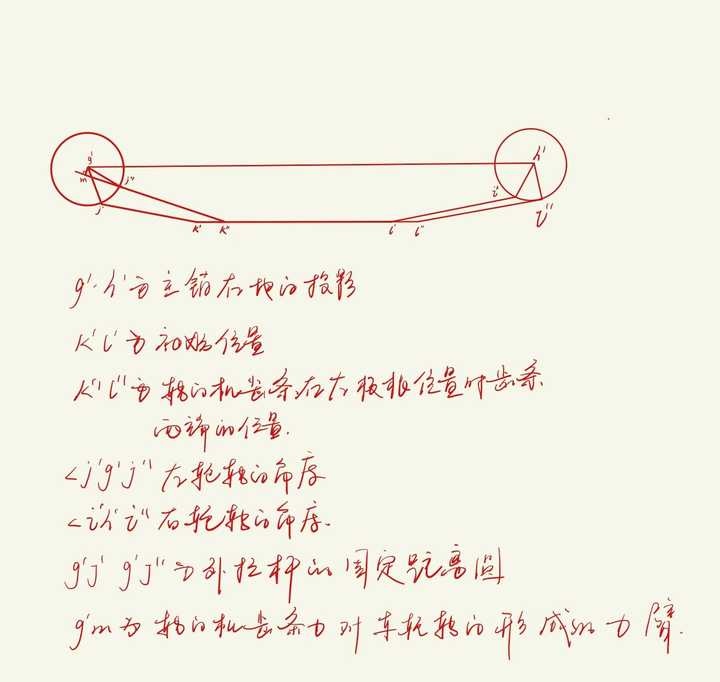 g' h'
m j''
j' i'
k' k'' l' l'' i''
g'.h'为主销在地的投影
k'l'为初始位置
k''l''为转向机齿条在右极限位置时齿条
两端的位置.
<j'g'j''左轮转向角度
<i'h'i''右轮转向角度.
g'j' g'j''为外拉杆的固定距离圆
g'm为转向机齿条力对车轮转向形成的力臂.